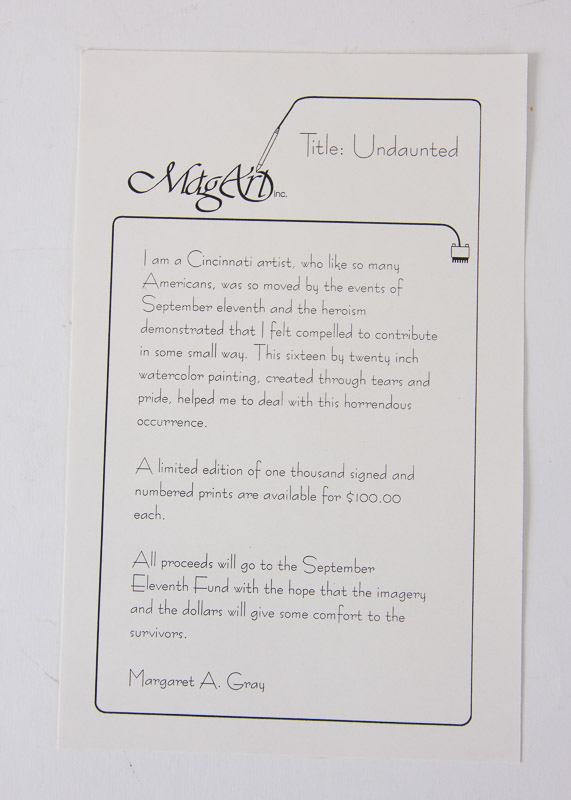 Title: Undaunted
MagArt inc.
I am a Cincinnati artist, who like so many
Americans, was so moved by the events of
September eleventh and the heroism
demonstrated that I felt compelled to contribute
in some small way. This sixteen by twenty inch
watercolor painting, created through tears and
pride, helped me to deal with this horrendous
occurrence.
A limited edition of one thousand signed and
numbered prints are available for $100.00
each.
All proceeds will go to the September
Eleventh Fund with the hope that the imagery
and the dollars will give some comfort to the
survivors.
Margaret A. Gray